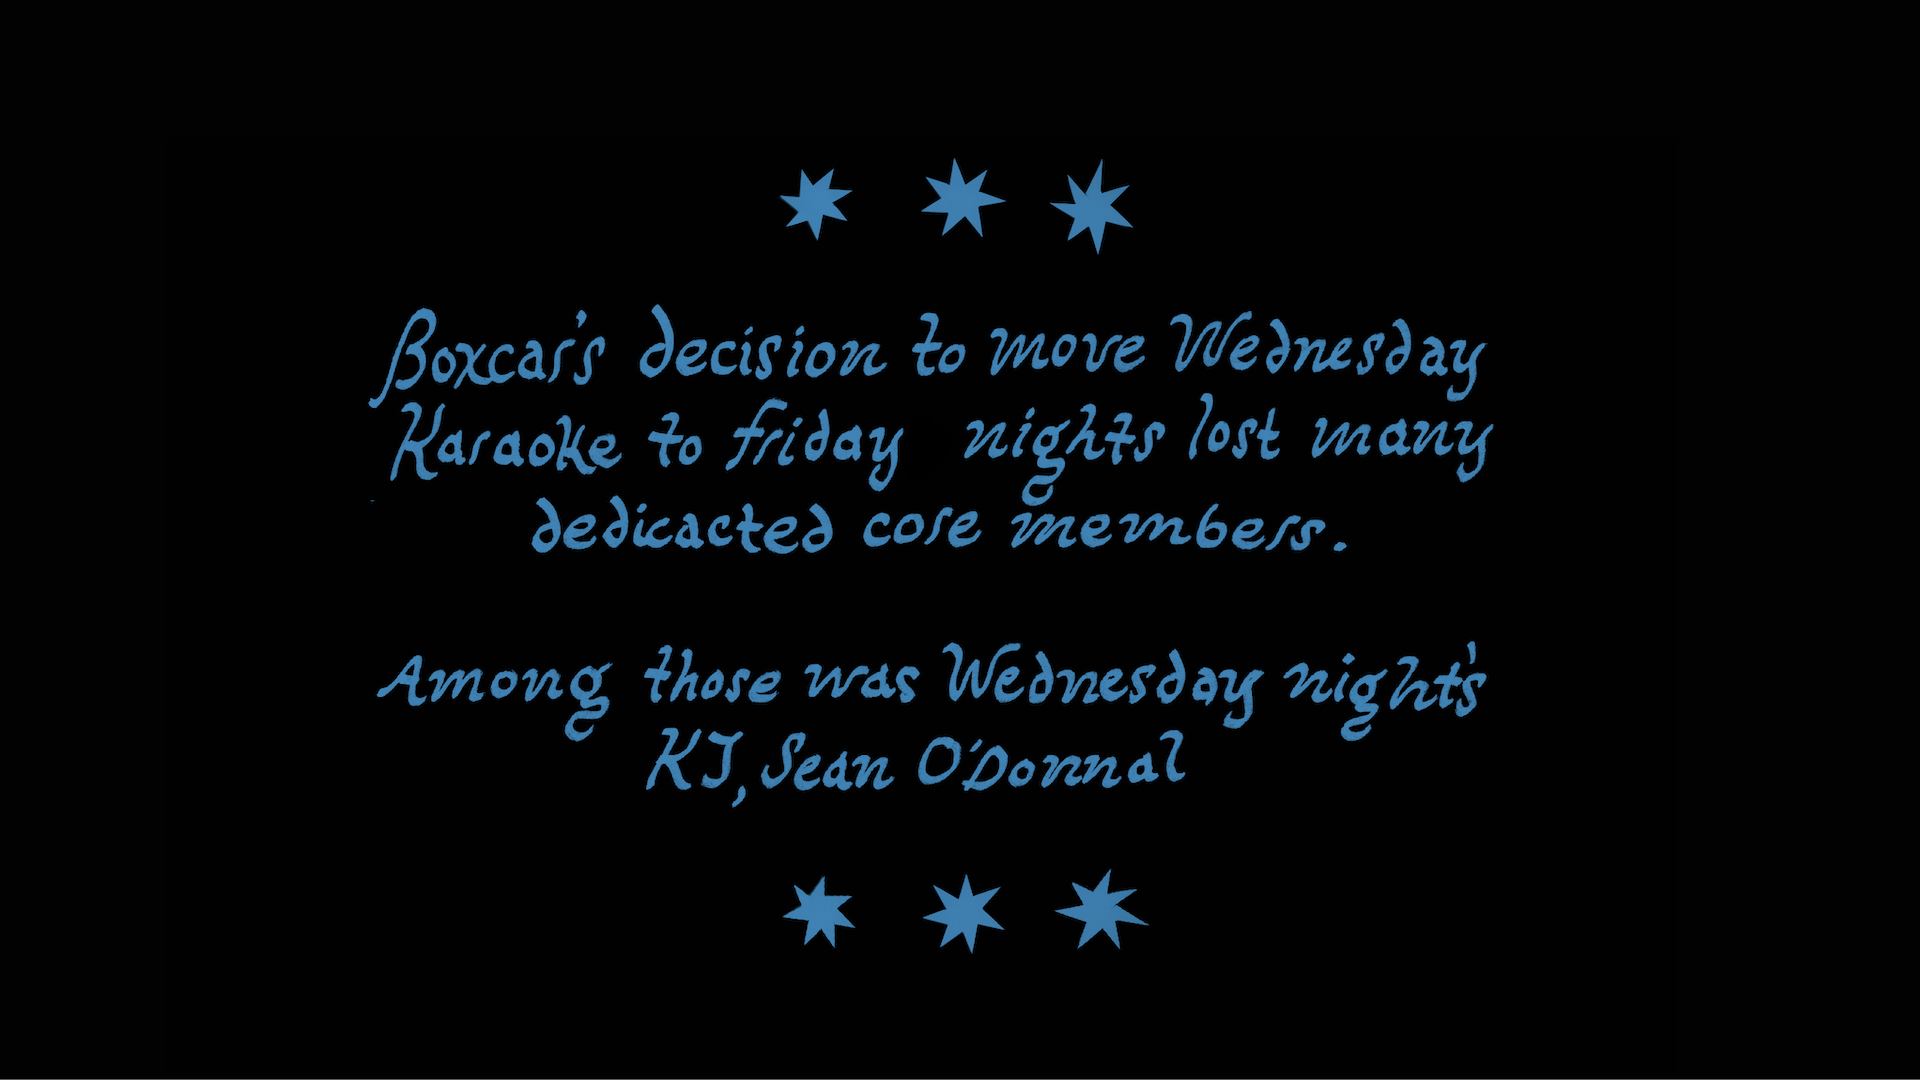 Boxcar's decision to move Wednesday
Karaoke to friday nights lost many
dedicacted core members.
Among those was Wednesday night's
KJ, Sean O'Donnal